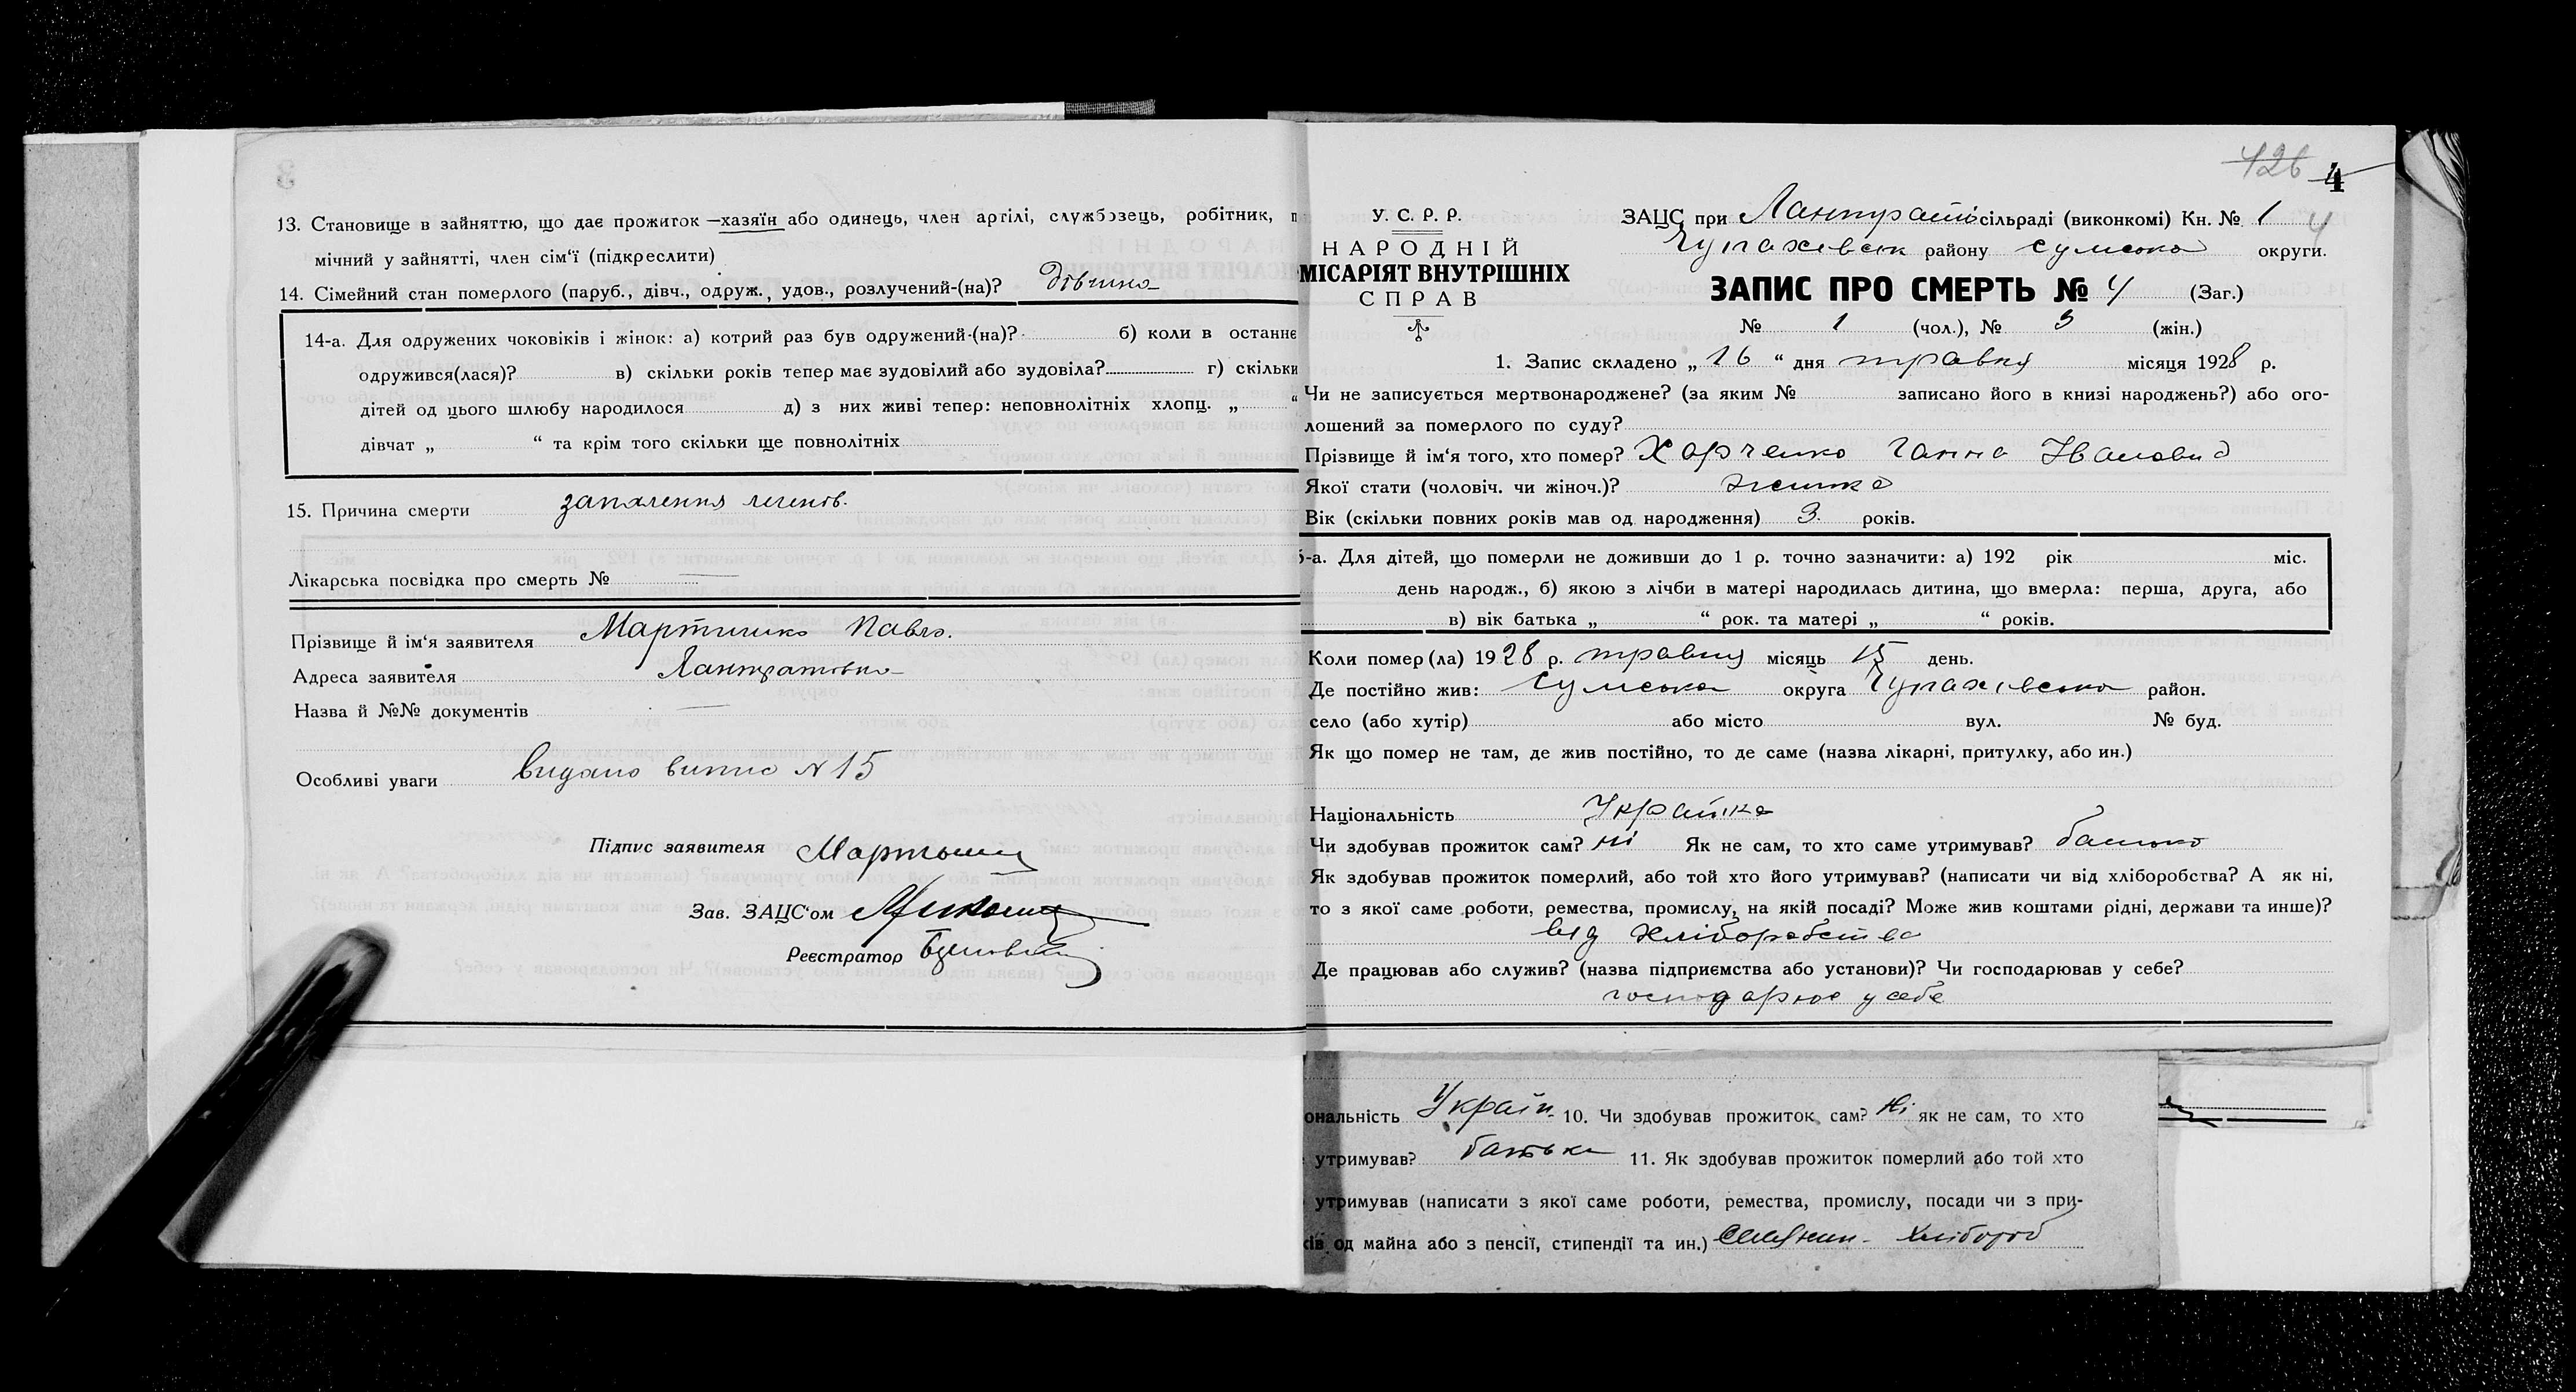 13. Становище в зайняттю, що дає прожиток —хазяїн або одинець, член артілі, службозець, робітник, п
мічний у зайнятті, член сім'ї (підкреслити)
14. Сімейний стан померлого (паруб., дівч., одруж., удов., розлучений-(на)? дівчина
14-а. Для одружених чоковіків і жінок: а) котрий раз був одружений-(на)? б) коли в останнє
одружився(лася)? в) скільки років тепер має зудовілий або зудовіла? г) скільки
дітей од цього шлюбу народилося д) з них живі тепер: неповнолітніх хлопц. „ “
дівчат „ “ та крім того скільки ще повнолітніх
15. Причина смерти запалення легенів.
Лікарська посвідка про смерть № —
Прізвище й ім'я заявителя Мартиненко Павло.
Адреса заявітеля Лантратівка
Назва й №№ документів —
Особливі уваги видано випис N 15
Підпис заявителя
Зав. ЗАЦС'ом
Реєстратор
426 4
У. С. Р. Р.
НАРОДНІЙ
МІСАРІЯТ ВНУТРІШНІХ
СПРАВ
ЗАЦС при сільраді (виконкомі) Кн. № 1 4
району Сумська округи.
ЗАПИС ПРО СМЕРТЬ № 4 (Заг.)
№ 1 (чол.), № 3 (жін.)
1. Запис складено „ 16 “ дня травня місяця 1928 р.
Чи не записується мертвонароджене? (за яким № записано його в книзі народжень?) або ого-
лошений за померлого по суду?
Прізвище й ім'я того, хто помер? Харченко Ганна Івановна
Якої стати (чоловіч. чи жіноч.)? жінка
Вік (скільки повних років мав од народження) 3. років.
5-а. Для дітей, що померли не доживши до 1 р. точно зазначити: а) 192 рік міс.
день народж., б) якою з лічби в матері народилась дитина, що вмерла: перша, друга, або
в) вік батька „ “ рок. та матері „ “ років.
Коли помер(ла) 1928 р. травня місяць 15 день.
Де постійно жив: Сумська округа район.
село (або хутір) або місто вул. № буд.
Як що помер не там, де жив постійно, то де саме (назва лікарні, притулку, або ин.)
Національність Українка
Чи здобував прожиток сам? ні Як не сам, то хто саме утримував? батько
Як здобував прожиток померлий, або той хто його утримував? (написати чи від хліборобства? А як ні,
то з якої саме роботи, ремества, промислу, на якій посаді? Може жив коштами рідні, держави та инше)?
від хліборобства
Де працював або служив? (назва підприємства або установи)? Чи господарював у себе?
господарює у себе
ональність Україн. 10. Чи здобував прожиток сам? Ні як не сам, то хто
утримував? батьки 11. Як здобував прожиток померлий або той хто
утримував (написати з якої саме роботи, ремества, промислу, посади чи з при-
ків од майна або з пенсії, стипендії та ин.) Селянин - хлібороб